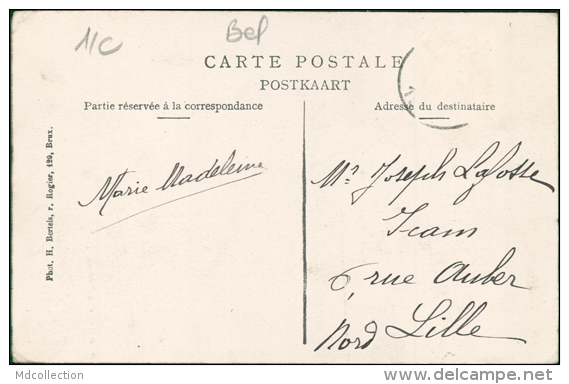 1/C
Bel
CARTE POSTALE
POSTKAART
Partie réservée à la correspondance
Adresse du destinataire
Phot. H. Bertels, r. Rogier, 129, Brux.
Marie Madeleine
Mr Joseph Lafosse
Icam
6, rue Auber
Lille
Nord
Mdcollection
http://www.delcampe.net